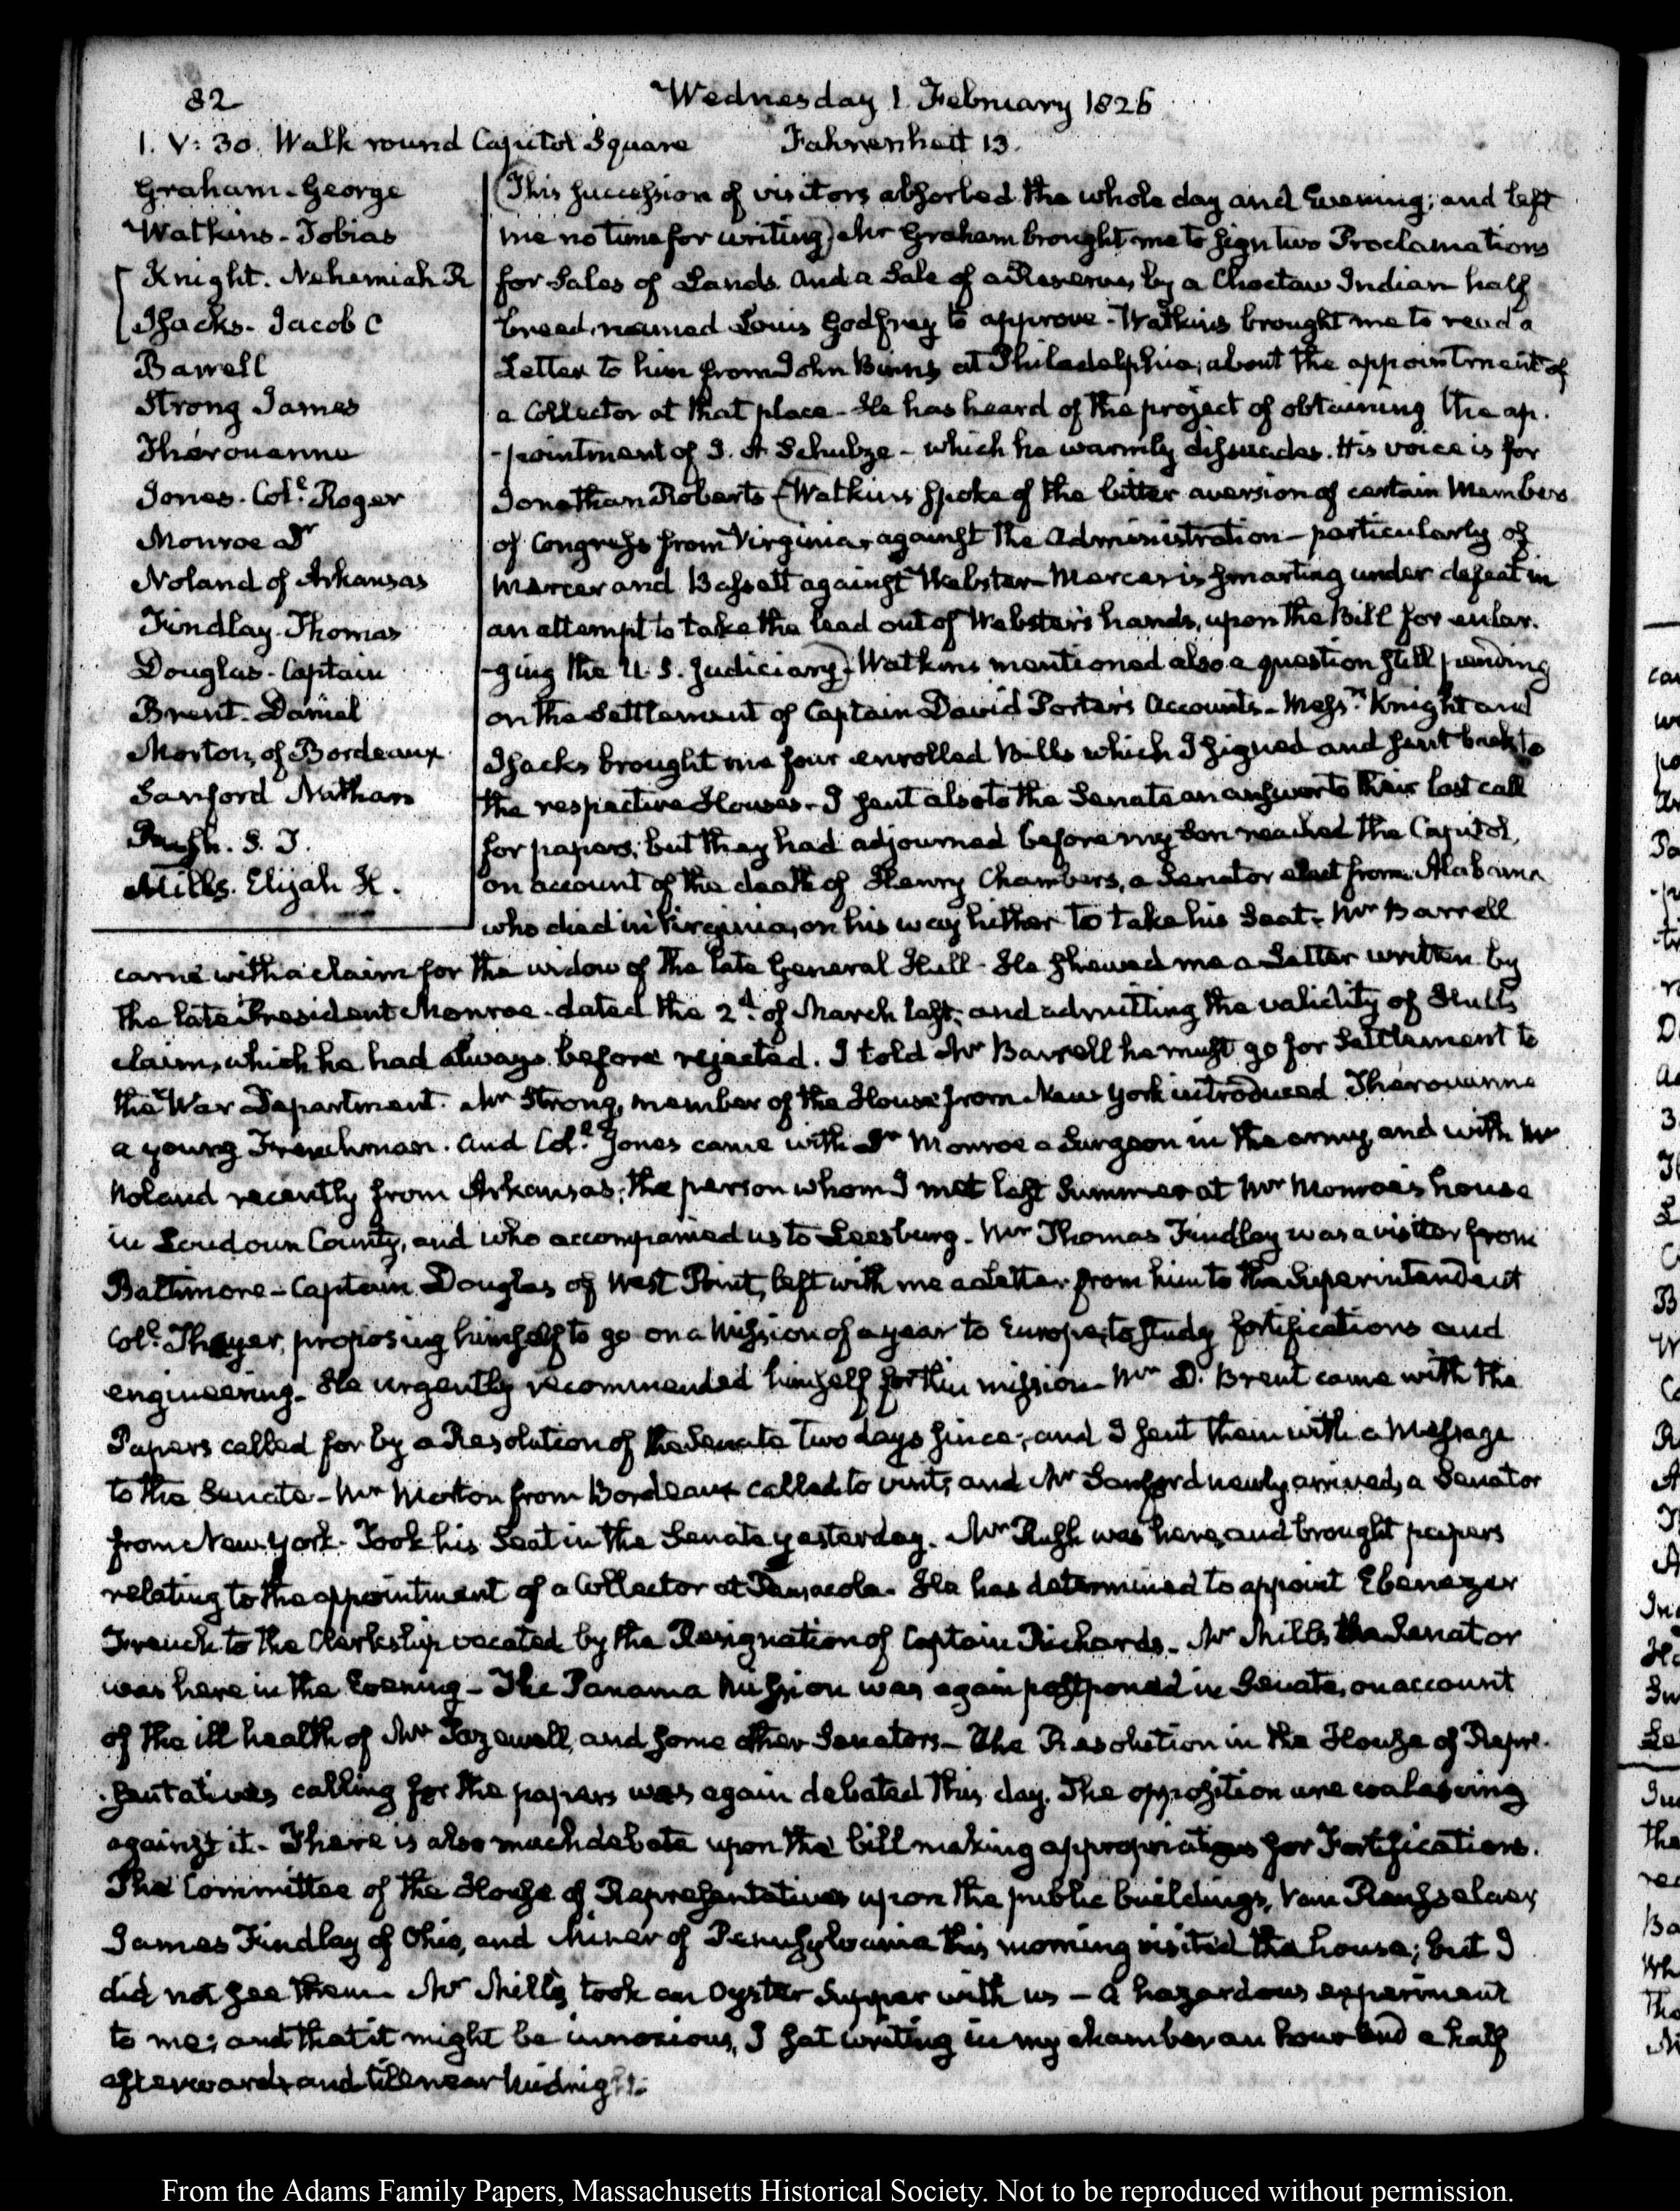 82
Wednesday 1. February 1826
1. V: 30. Walk round Capitol Square Fahrenheit 13.
Graham. George
Watkins - Tobias
Knight. Nehemiah R
Isacks. Jacob C
Barrell
Strong James
Therouanne
Jones. Col.e Roger
Monroe Dr
Noland of Arkansas
Findlay. Thomas
Douglas - Captain
Brent. Daniel
Morton, of Bordeaux
Sanford Nathan
Rush. S. J.
Mills. Elijah H.
(This succession of visitors absorbed the whole day and Evening; and left
me no time for writing) Mr Graham brought me to sign two Proclamations
for Sales of Lands. and a Sale of a Reserve, by a Choctaw Indian half
breed, named Louis Godfrey to approve - Watkins brought me to read a
Letter to him from John Binns at Philadelphia; about the appointment of
a Collector at that place - He has heard of the project of obtaining the ap.
-pointment of J. A Schulze - which he warmly dissuades. His voice is for
Jonathan Roberts - (Watkins spoke of the bitter aversion of certain Members
of Congress from Virginia, against the Administration - particularly of
Mercer and Bassett against Webster - Mercer is smarting under defeat in
an attempt to take the lead out of Webster's hands, upon the Bill for enlar.
-ging the U.S. Judiciary). Watkins mentioned also a question still pending
on the Settlement of Captain David Porter's Accounts - Messrs. Knight and
Isacks brought me four enrolled Bills which I signed and sent back to
the respective Houses - I sent also to the Senate an answer to their last call
for papers; but they had adjourned before my Son reached the Capitol,
on account of the death of Henry Chambers, a Senator elect from Alabama
who died in Virginia, on his way hither to take his Seat. Mr Barrell
came with a claim for the widow of the late General Hull - He shewed me a Letter written by
the late President Monroe - dated the 2d. of March last; and admitting the validity of Hull's
claim, which he had always before rejected. I told Mr Barrell he must go for Settlement to
the War Department. Mr Strong, member of the House from New York introduced Therouanne
a young Frenchman. and Col.e Jones came with Dr Monroe a Surgeon in the army, and with Mr
Noland recently from Arkansas; the person whom I met last Summer at Mr Monroe's house
in Loudoun County, and who accompanied us to Leesburg. Mr Thomas Findlay was a visitor from
Baltimore - Captain Douglas of West Point, left with me a Letter from him to the Superintendent
Col.e Thayer, proposing himself to go on a Mission of a year to Europe, to study fortifications and
engineering. He urgently recommended himself for this mission - Mr D. Brent came with the
Papers called for by a Resolution of the Senate two days since; and I sent them with a Message
to the Senate - Mr Morton from Bordeaux called to visit; and Mr Sanford newly arrived, a Senator
from New York. Took his Seat in the Senate yesterday. Mr Rush was here, and brought papers
relating to the appointment of a Collector at Pensacola. He has determined to appoint Ebenezer
French to the Clerkship vacated by the Resignation of Captain Richards. Mr Mills the Senator
was here in the Evening - The Panama Mission was again postponed in Senate, on account
of the ill health of Mr Tazewell, and some other Senators - The Resolution in the House of Repre-
-sentatives calling for the papers was again debated this day. The opposition are coalescing
against it - There is also much debate upon the bill making appropriations for Fortifications.
The Committee of the House of Representatives upon the public buildings, Van Rensselaer,
James Findlay of Ohio, and Miner of Pennsylvania this morning visited the house; but I
did not see them - Mr Mills took an Oyster Supper with us - a hazardous experiment
to me; and that it might be innoxious, I sat writing in my chamber an hour and a half
afterwards and till near Midnight.
From the Adams Family Papers, Massachusetts Historical Society. Not to be reproduced without permission.